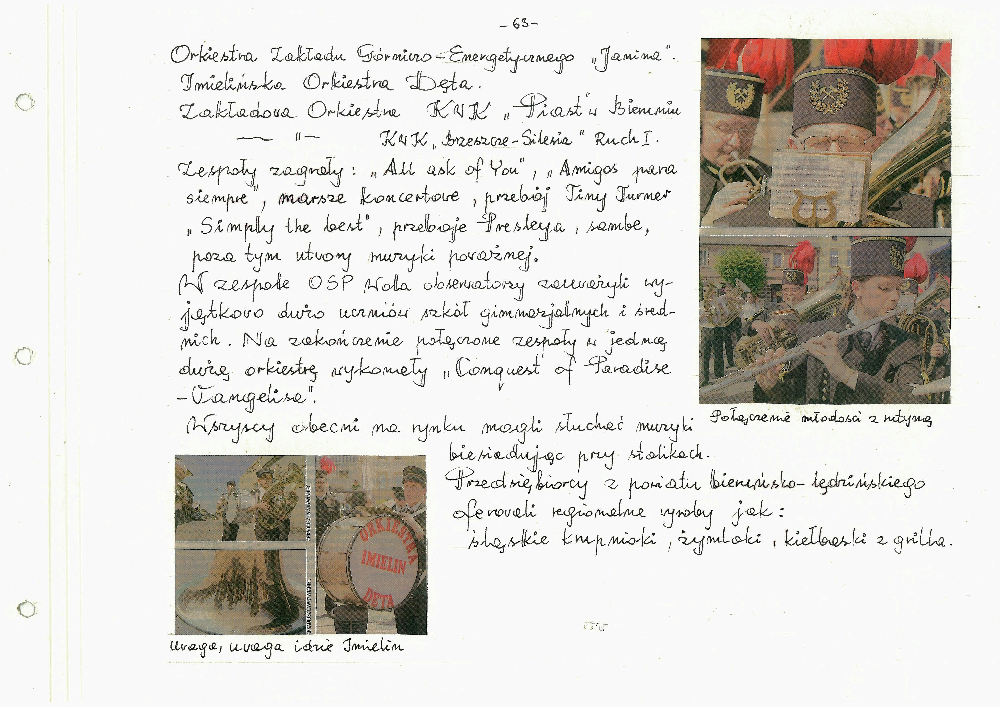 - 63 -
Orkiestra Zakładu Górniczo-Energetycznego „Janina".
Imielińska Orkiestra Dęta.
Zakładowa Orkiestra KWK „Piast" w Bieruniu
— " — KWK „Brzeszcze-Silesia" Ruch I.
Zespoły zagrały: „All ask of You", „Amigos para
siempre", marsze koncertowe, przebój Tiny Turner
„Simply the best", przeboje Presleya, sambę,
poza tym utwory muzyki poważnej.
W zespole OSP Wola obserwatorzy zauważyli wy-
jątkowo dużo uczniów szkół gimnazjalnych i śred-
nich. Na zakończenie połączone zespoły w jedną
dużą orkiestrę wykonały „Conquest of Paradise
- Vangelisa".
Wszyscy obecni na rynku mogli słuchać muzyki
biesiadując przy stolikach.
Przedsiębiorcy z powiatu bieruńsko-lędzińskiego
oferowali regionalne wyroby jak:
śląskie krupnioki, żymloki, kiełbaski z grilla.
Połączenie młodości z rutyną
ORKIESTRA
IMIELIN
DĘTA
Uwaga, uwaga idzie Imielin